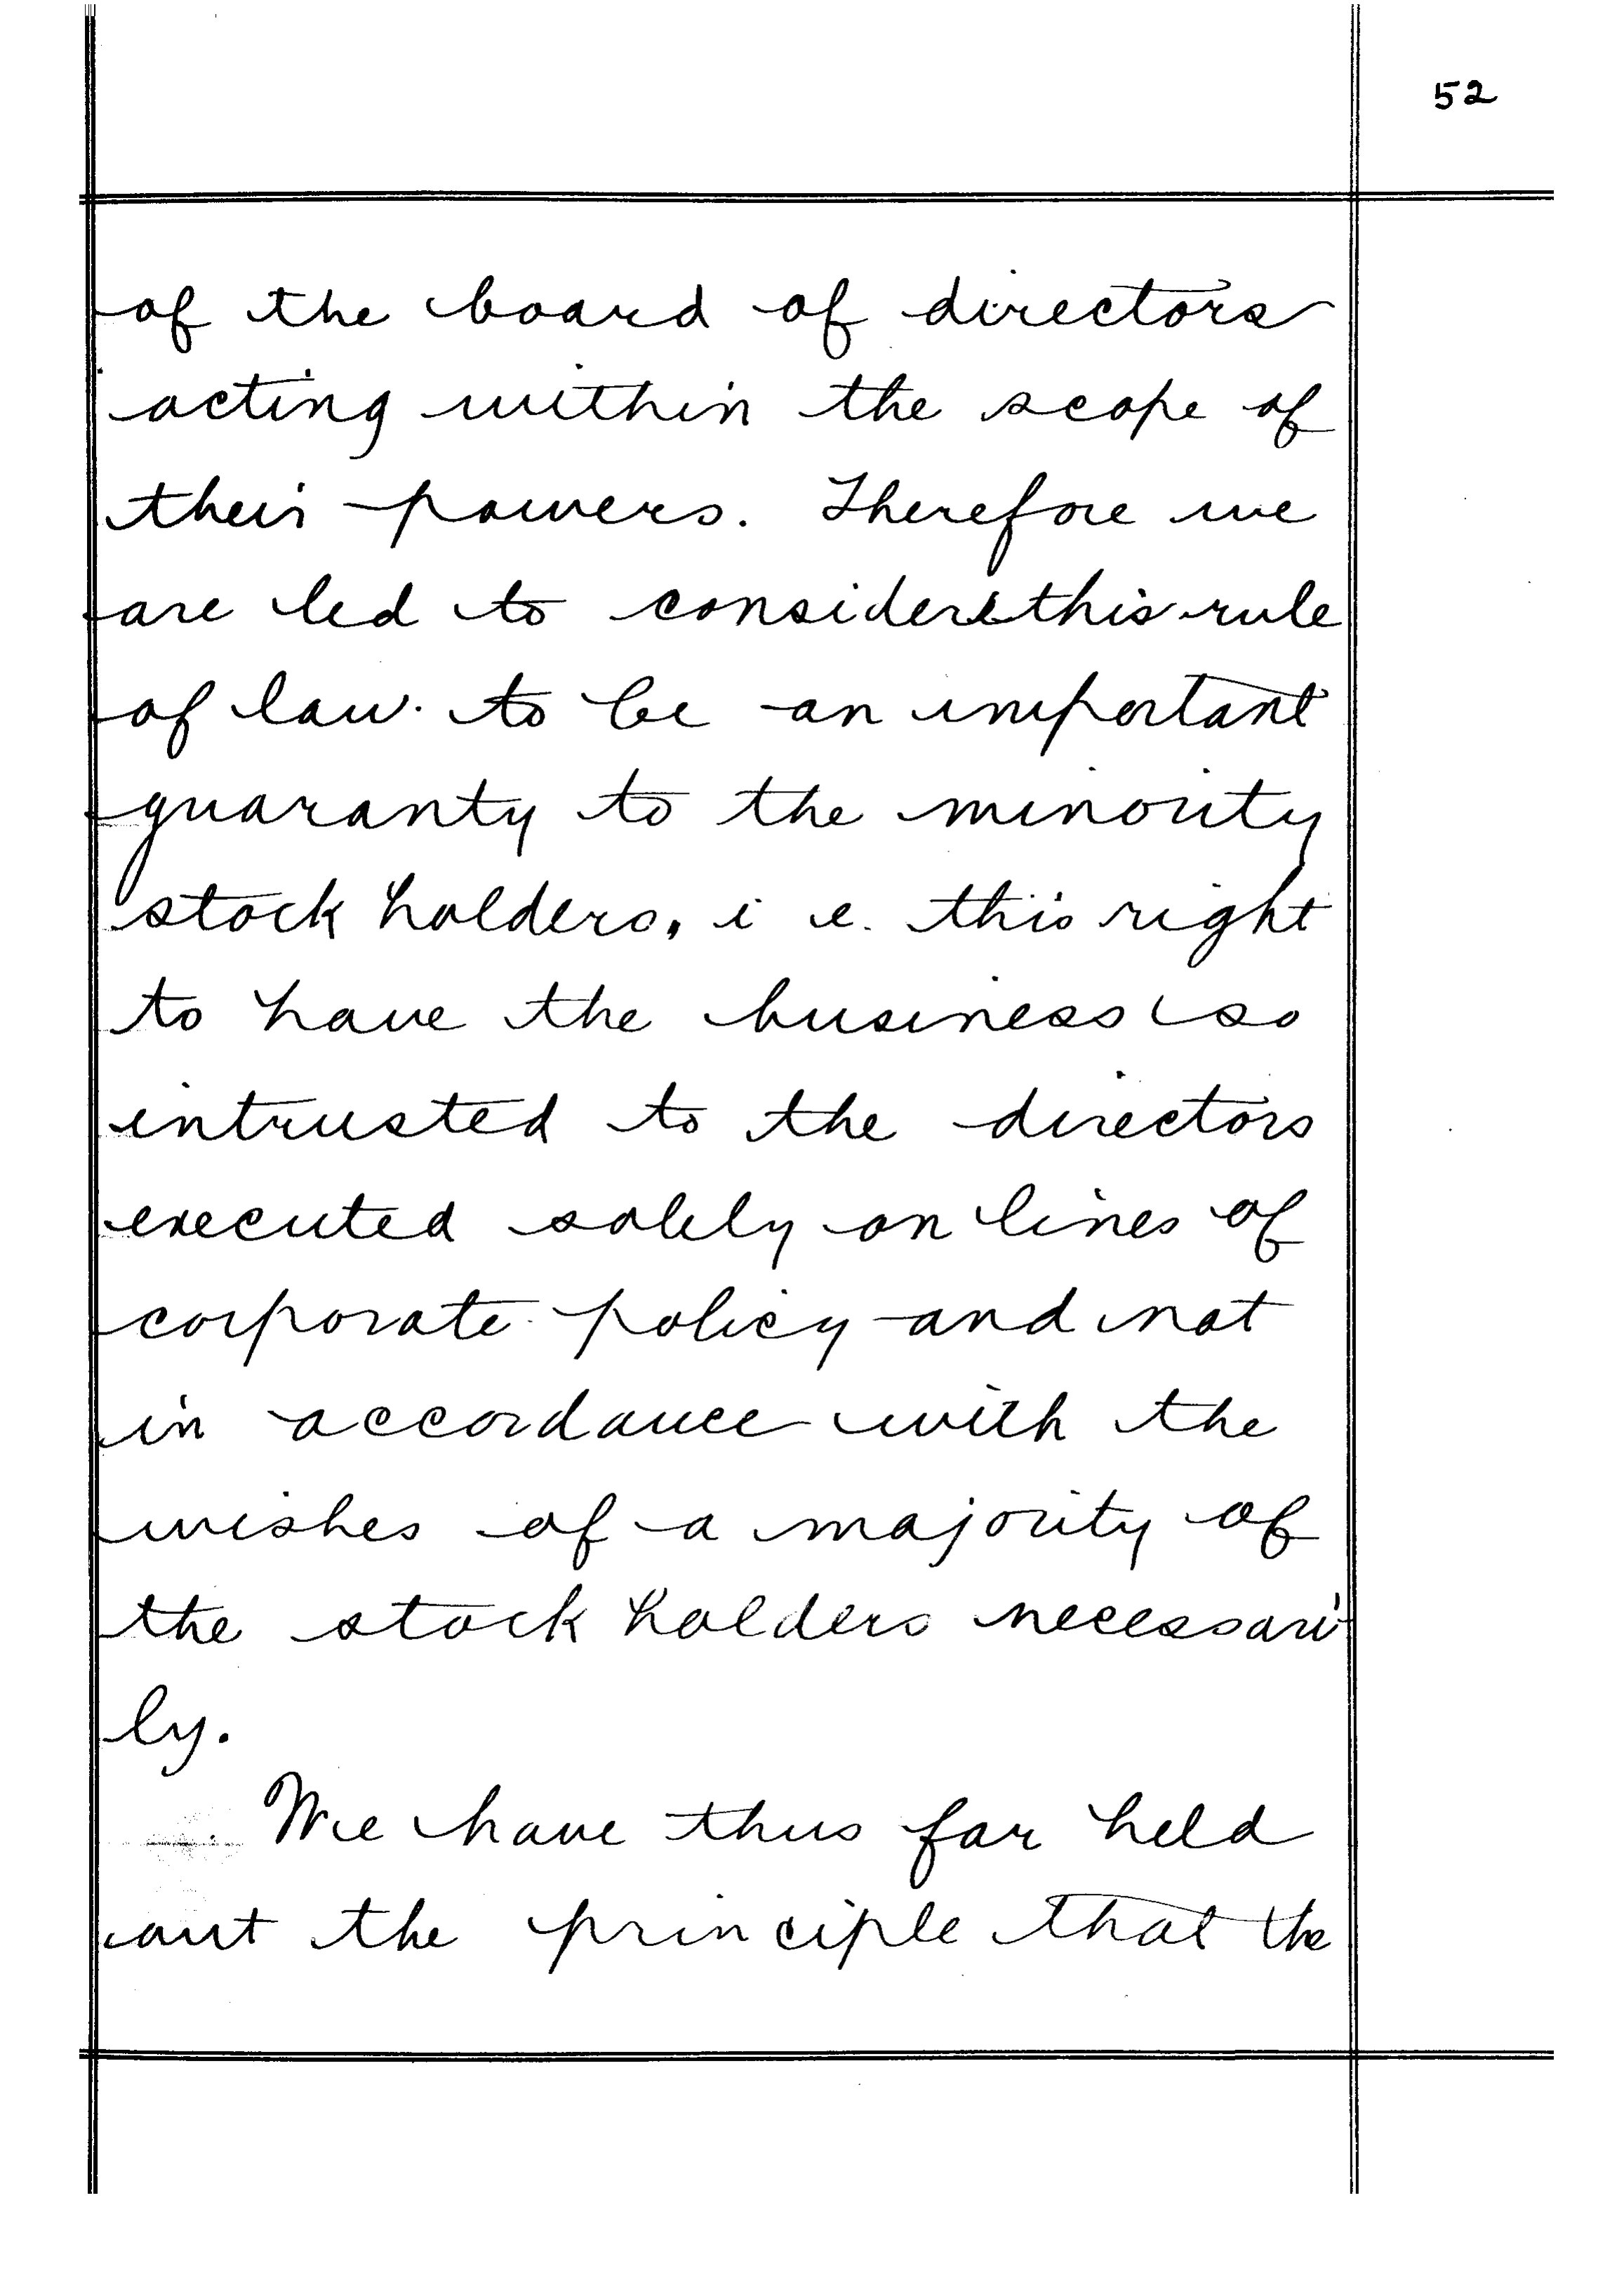 52
of the board of directors
acting within the scope of
their powers. Therefore we
are led to consider this rule
of law to be an important
guaranty to the minority
stock holders, i e. this right
to have the business so
intrusted to the directors
executed solely on lines of
corporate policy and not
in accordance with the
wishes of a majority of
the stock holders necessari
ly.
We have thus far held
out the principle that the